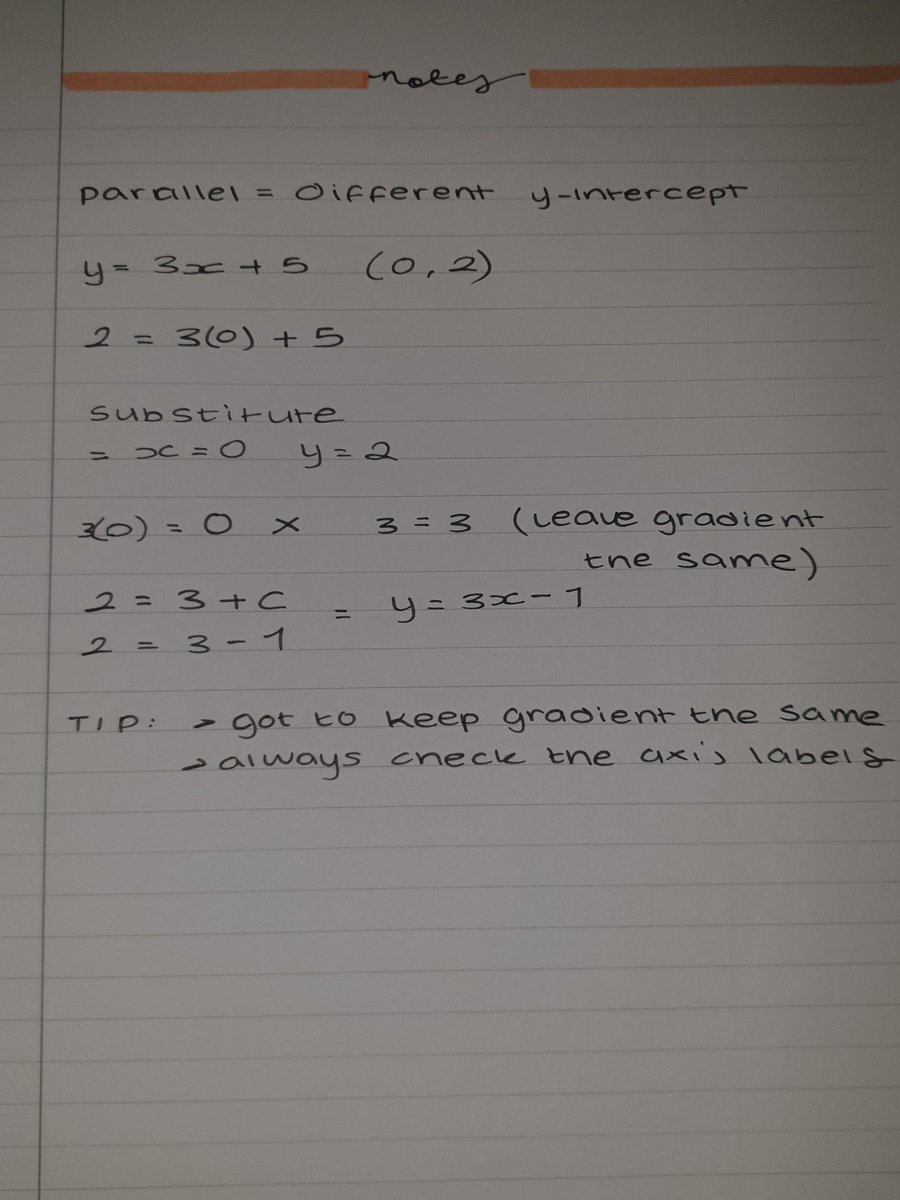 notes
parallel = Different y-intercept
y = 3x + 5 (0, 2)
2 = 3(0) + 5
substiture
= x = 0 y = 2
3(0) = 0 x 3 = 3 (Leave gradient
the same)
2 = 3 + C = y = 3x - 1
2 = 3 - 1
TIP: > got to keep gradient the same
> always check the axis labels